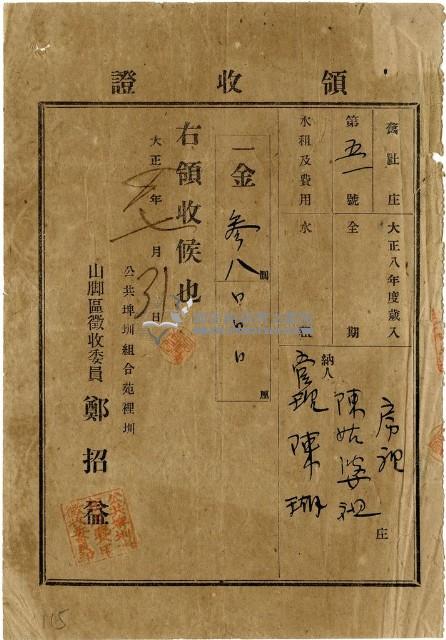 領收證
舊社庄 大正八年度歲入
第五一號 全期
水租及費用 水租
房裡庄
納人 陳姑婆祖
管理 陳瑚
一金 參八圓 厘
右領收候也
大正 年七月31日
公共埤圳組合苑裡圳
山脚區徵收委員 鄭招益
115